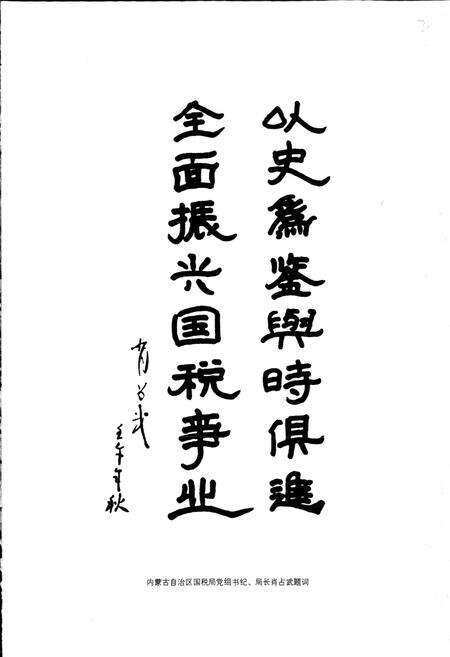 以史為鉴與時俱進
全面振兴国税事业
肖占武
壬午年秋
内蒙古自治区国税局党组书纪、局长肖占武题词